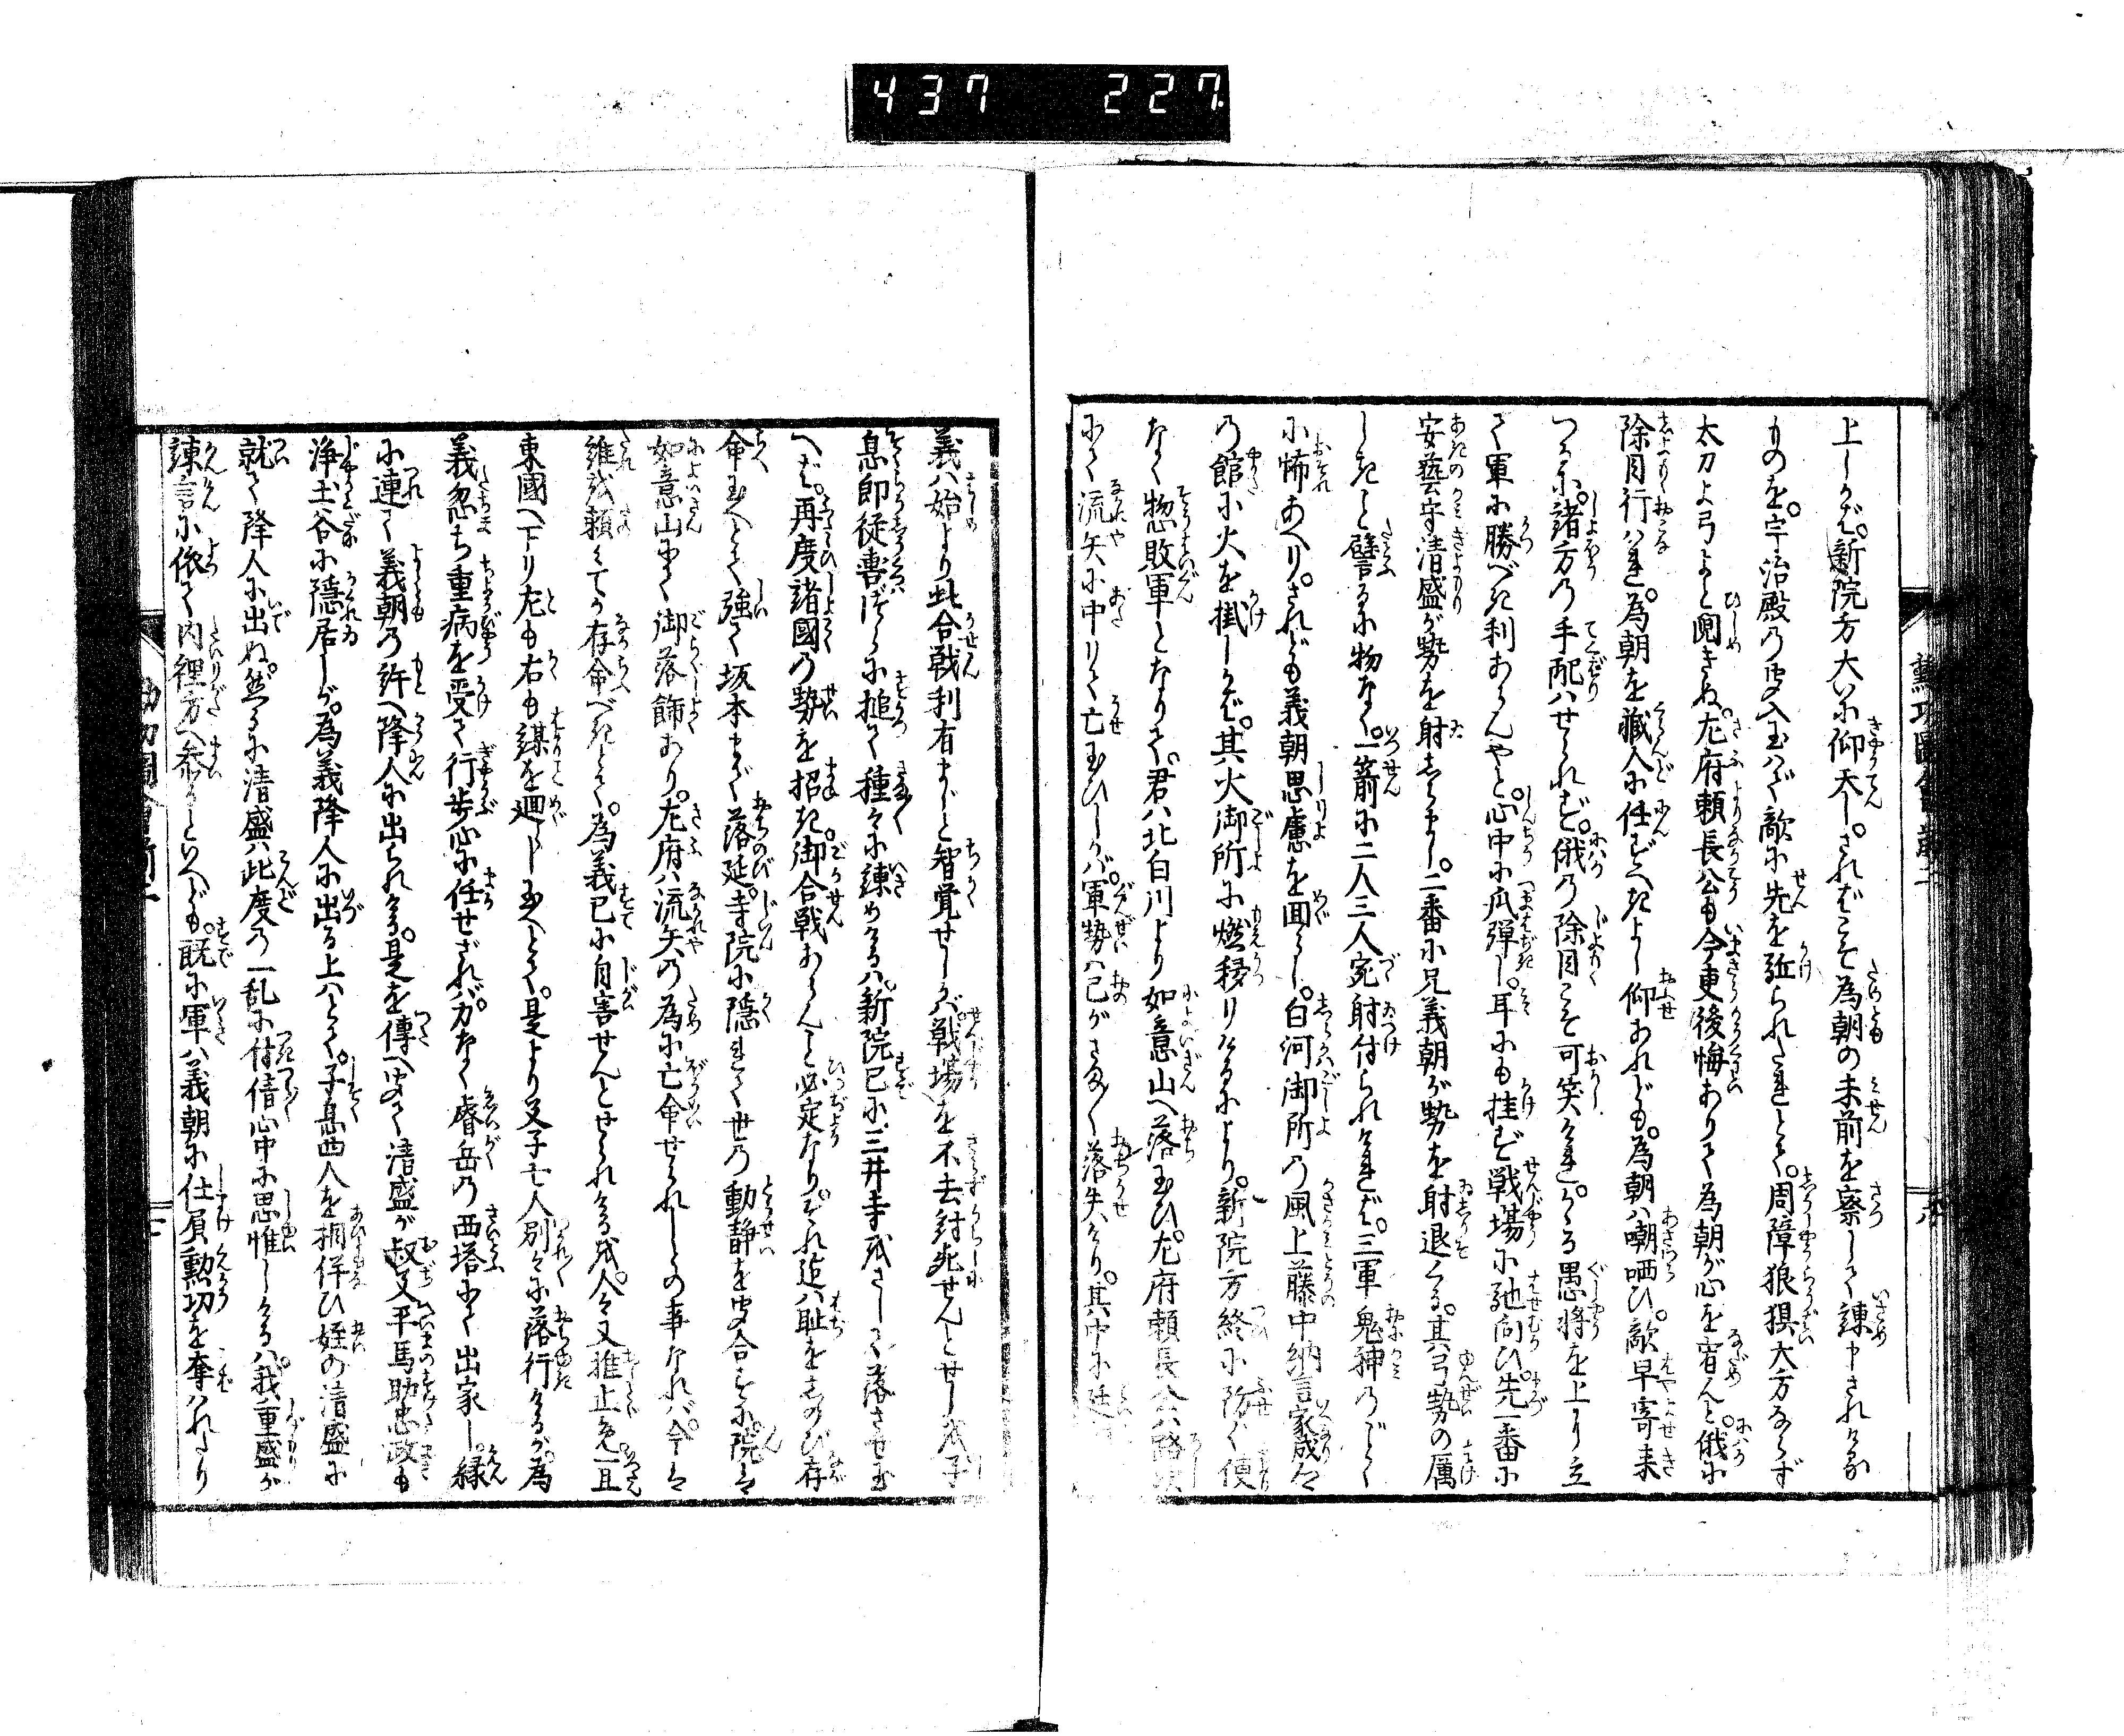 437 227
上しかば。新院方大いに仰天し。さればこそ為朝の未前を察して諌申されける
ものを。宇治殿の聞入玉はで敵に先を征られたれとて。周障狼狽大方ならず
太刀よ弓よと鬩きぬ。左府頼長公も今更後悔ありて為朝が心を宥んと。俄に
除目行はれ。為朝を蔵人に任ずべきよし仰あれども。為朝ハ嘲哂ひ。敵早寄来
つるに。諸方の手配ハせられず。俄の除目こそ可笑けれ。かゝる愚将を上に立
て軍に勝べき利あらんやと。心中に爪弾し。耳にも挂ず戦場に馳向ひ。先一番に
安藝守清盛が勢を射しらまし。二番に兄義朝が勢を射退くる。其弓勢の厲
しきと譬るに物なく。一箭に二人三人宛射付られければ。三軍鬼神のごとく
に怖あへり。されども義朝思慮を囬らし。白河御所の風上藤中納言家成卿
の館に火を掛しかば。其火御所に燃移りけるにより。新院方終に防ぐ便
なく惣敗軍となりにき。君ハ北白川より如意山へ落玉ひ。左府頼長公ハ路次
にて流矢に中りて亡玉ひしかバ。軍勢ハ己がさま〲落失けり。其中に廷
義ハ始より此合戦利有まじと智覚せしかバ。戦場を不去討死せんとせしを子
息即従喜げに搥て種々に諌めけるハ。新院已に三井寺をさして落させ玉
へば。再度諸國の勢を招き。御合戦あらんと必定なり。されバ恥をしのび存
命玉へとて強て坂本まで落延。寺院に隠れて世の動静を聞合すに。院は
如意山にて御落飾あり。左府ハ流矢の為に亡命せられしとの事なれバ。今は
誰を頼みてか存命べきとて。為義已に自害せんとせられけるを人々又推止免一旦
東國へ下り左も右も謀を廻らし玉へとて。是より父子七人別々に落行けるが。為
義忽ち重病を受て行歩心に任せざれバ。力なく睿岳の西塔にて出家し。縁
に連て義朝の許へ降人に出られける。是を傳へ聞て清盛が叔父平馬助忠政も
浄土谷に隠居しが。為義降人に出る上ハとて。子息四人を相伴ひ姪の清盛に
就て降人に出ぬ。然るに清盛ハ此度の一乱に付倩心中に思惟しけるハ。我重盛が
諌言に依て内裡方へ参るといへども。既に軍ハ義朝に仕負勲功を奪ハれたり